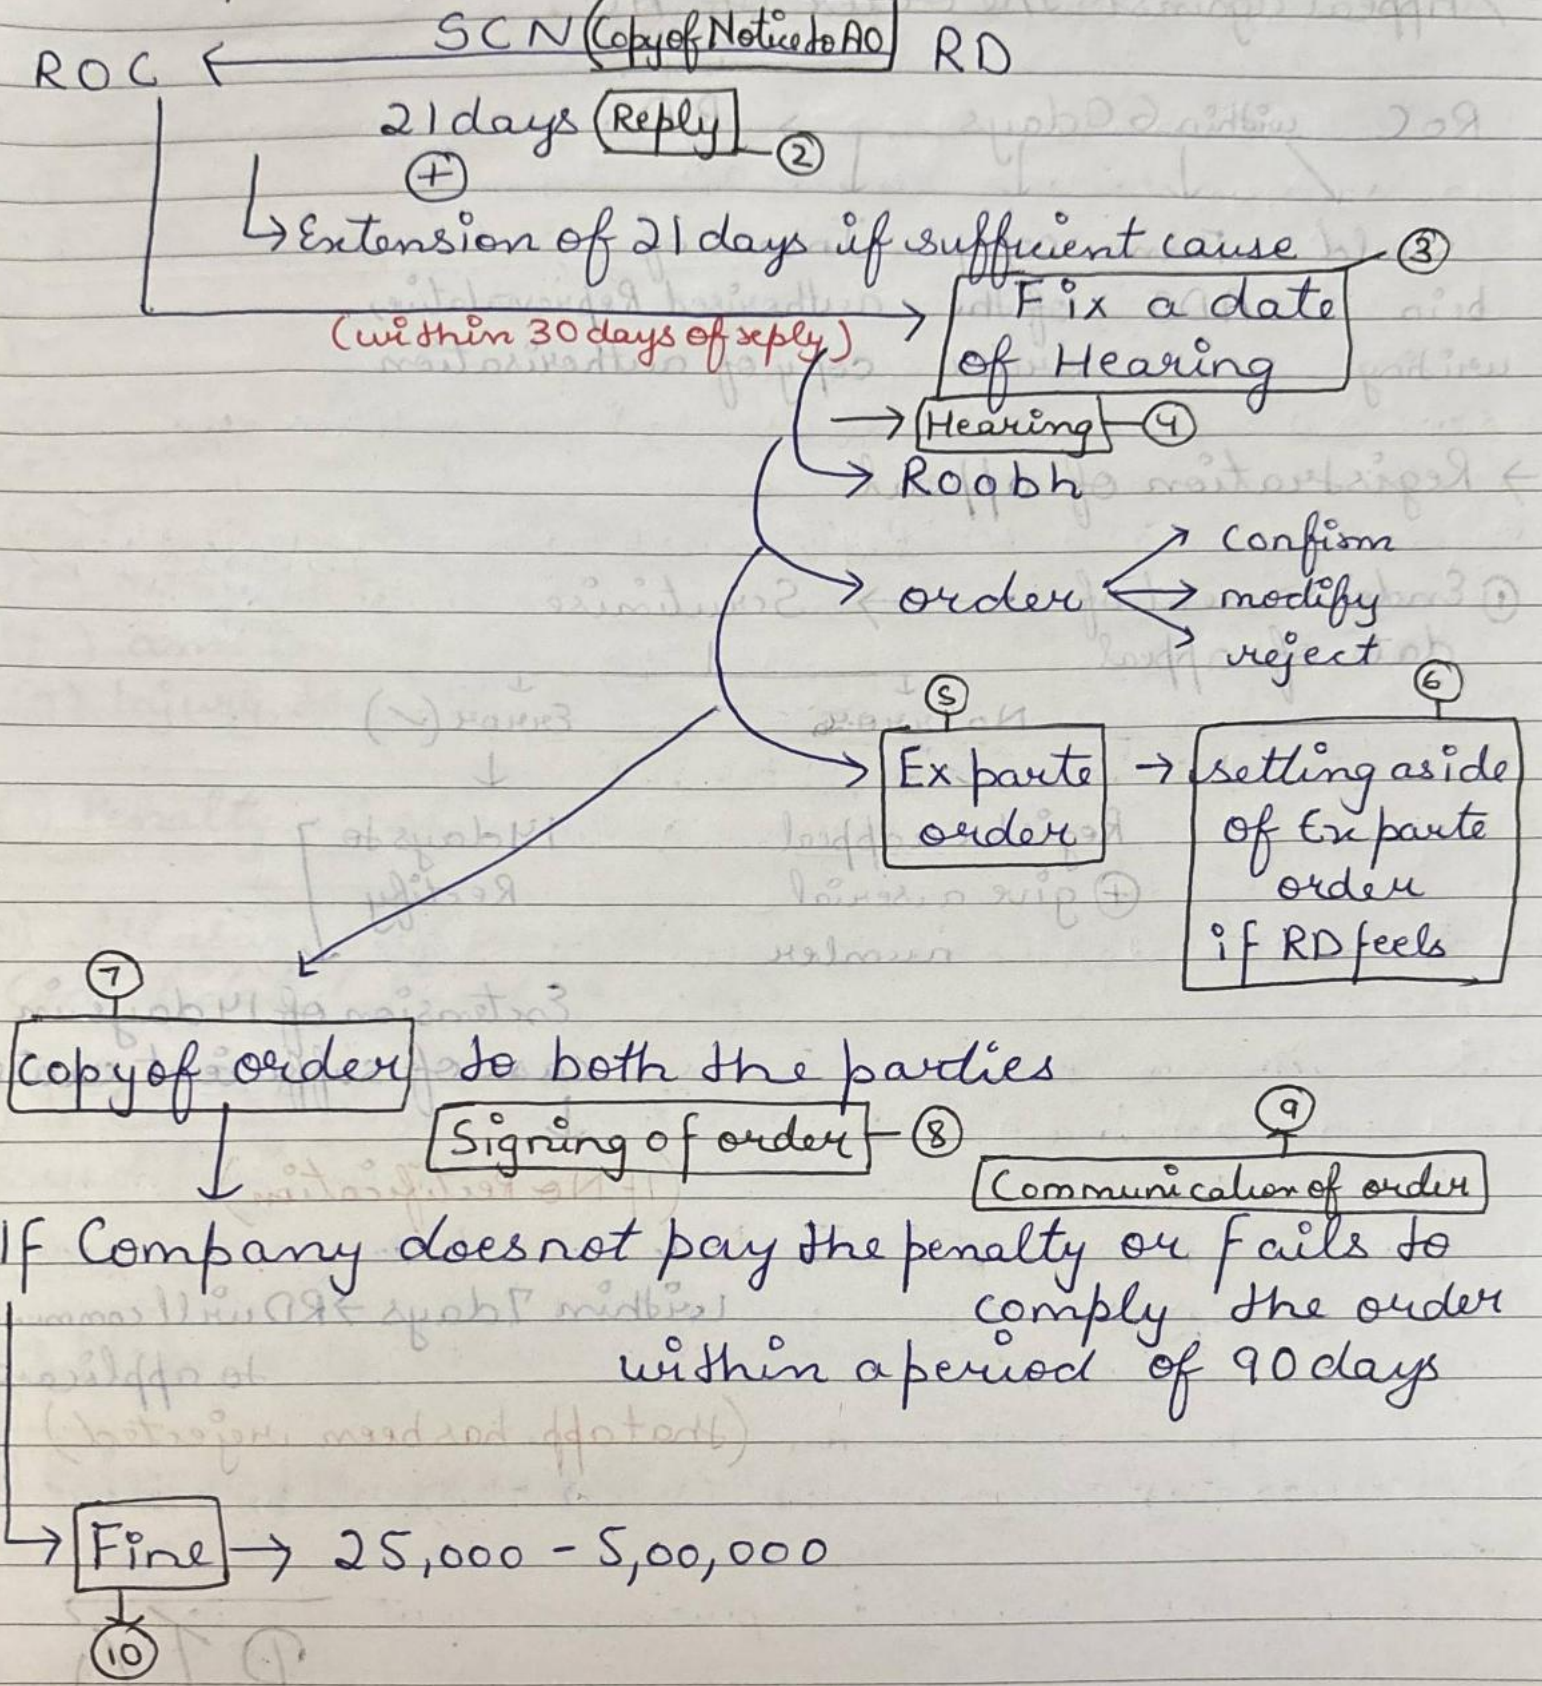 SCN (Copy of Notice to AO) RD
ROC
21 days (Reply) ②
⊕
Extension of 21 days if sufficient cause
③
(within 30 days of reply) Fix a date
of Hearing
Hearing ④
Roobh
order
confirm
modify
reject
⑤
Ex parte
order
⑥
setting aside
of Ex parte
order
if RD feels
⑦
copy of order to both the parties
Signing of order ⑧
⑨
Communication of order
If Company does not pay the penalty or fails to
comply the order
within a period of 90 days
Fine → 25,000 - 5,00,000
⑩